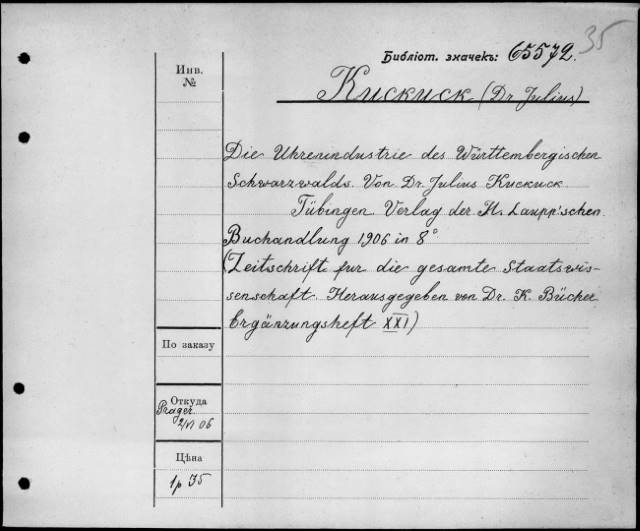 35
Библіот. значекъ: 65572.
Инв.
№
Kuckuck (Dr Julius)
Die Uhrenindustrie des Württembergischen
Schwarzwalds. Von Dr. Julius Kuckuck.
Tübingen. Verlag der H. Laupp'schen
Buchandlung 1906 in 8°
(Zeitschrift fur die gesamte Staatswis-
senschaft. Herausgegeben von Dr. K. Bücher
Ergänzungsheft XXI)
По заказу
Откуда
Prager
2/VI 06
Цѣна
1р 35